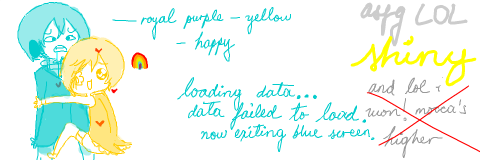 — royal purple - yellow
- happy
loading data...
data failed to load.
now exiting blue screen.
asfg LOL
shiny
and lol i
won! mocca's
higher